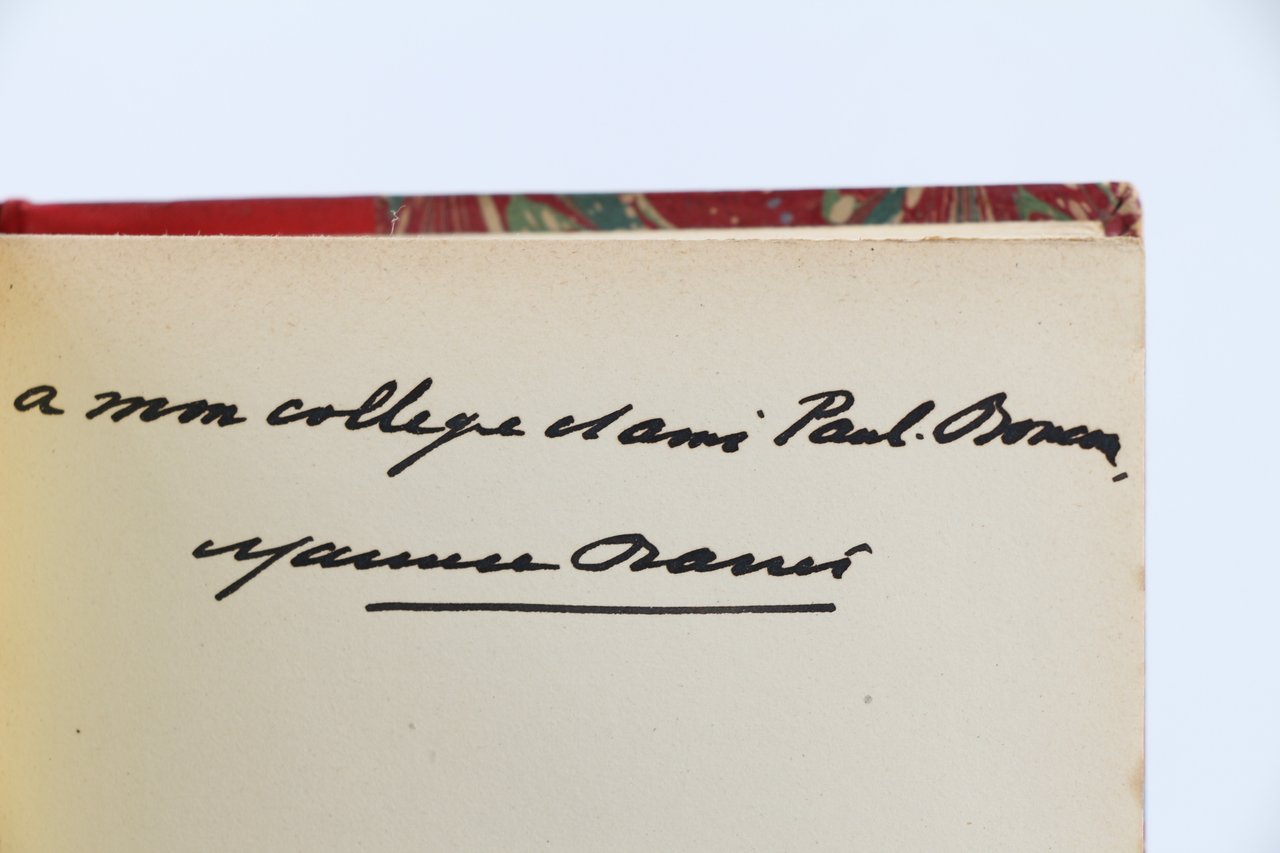 a mon collegue et ami Paul-Boncour,
Maurice Barrès